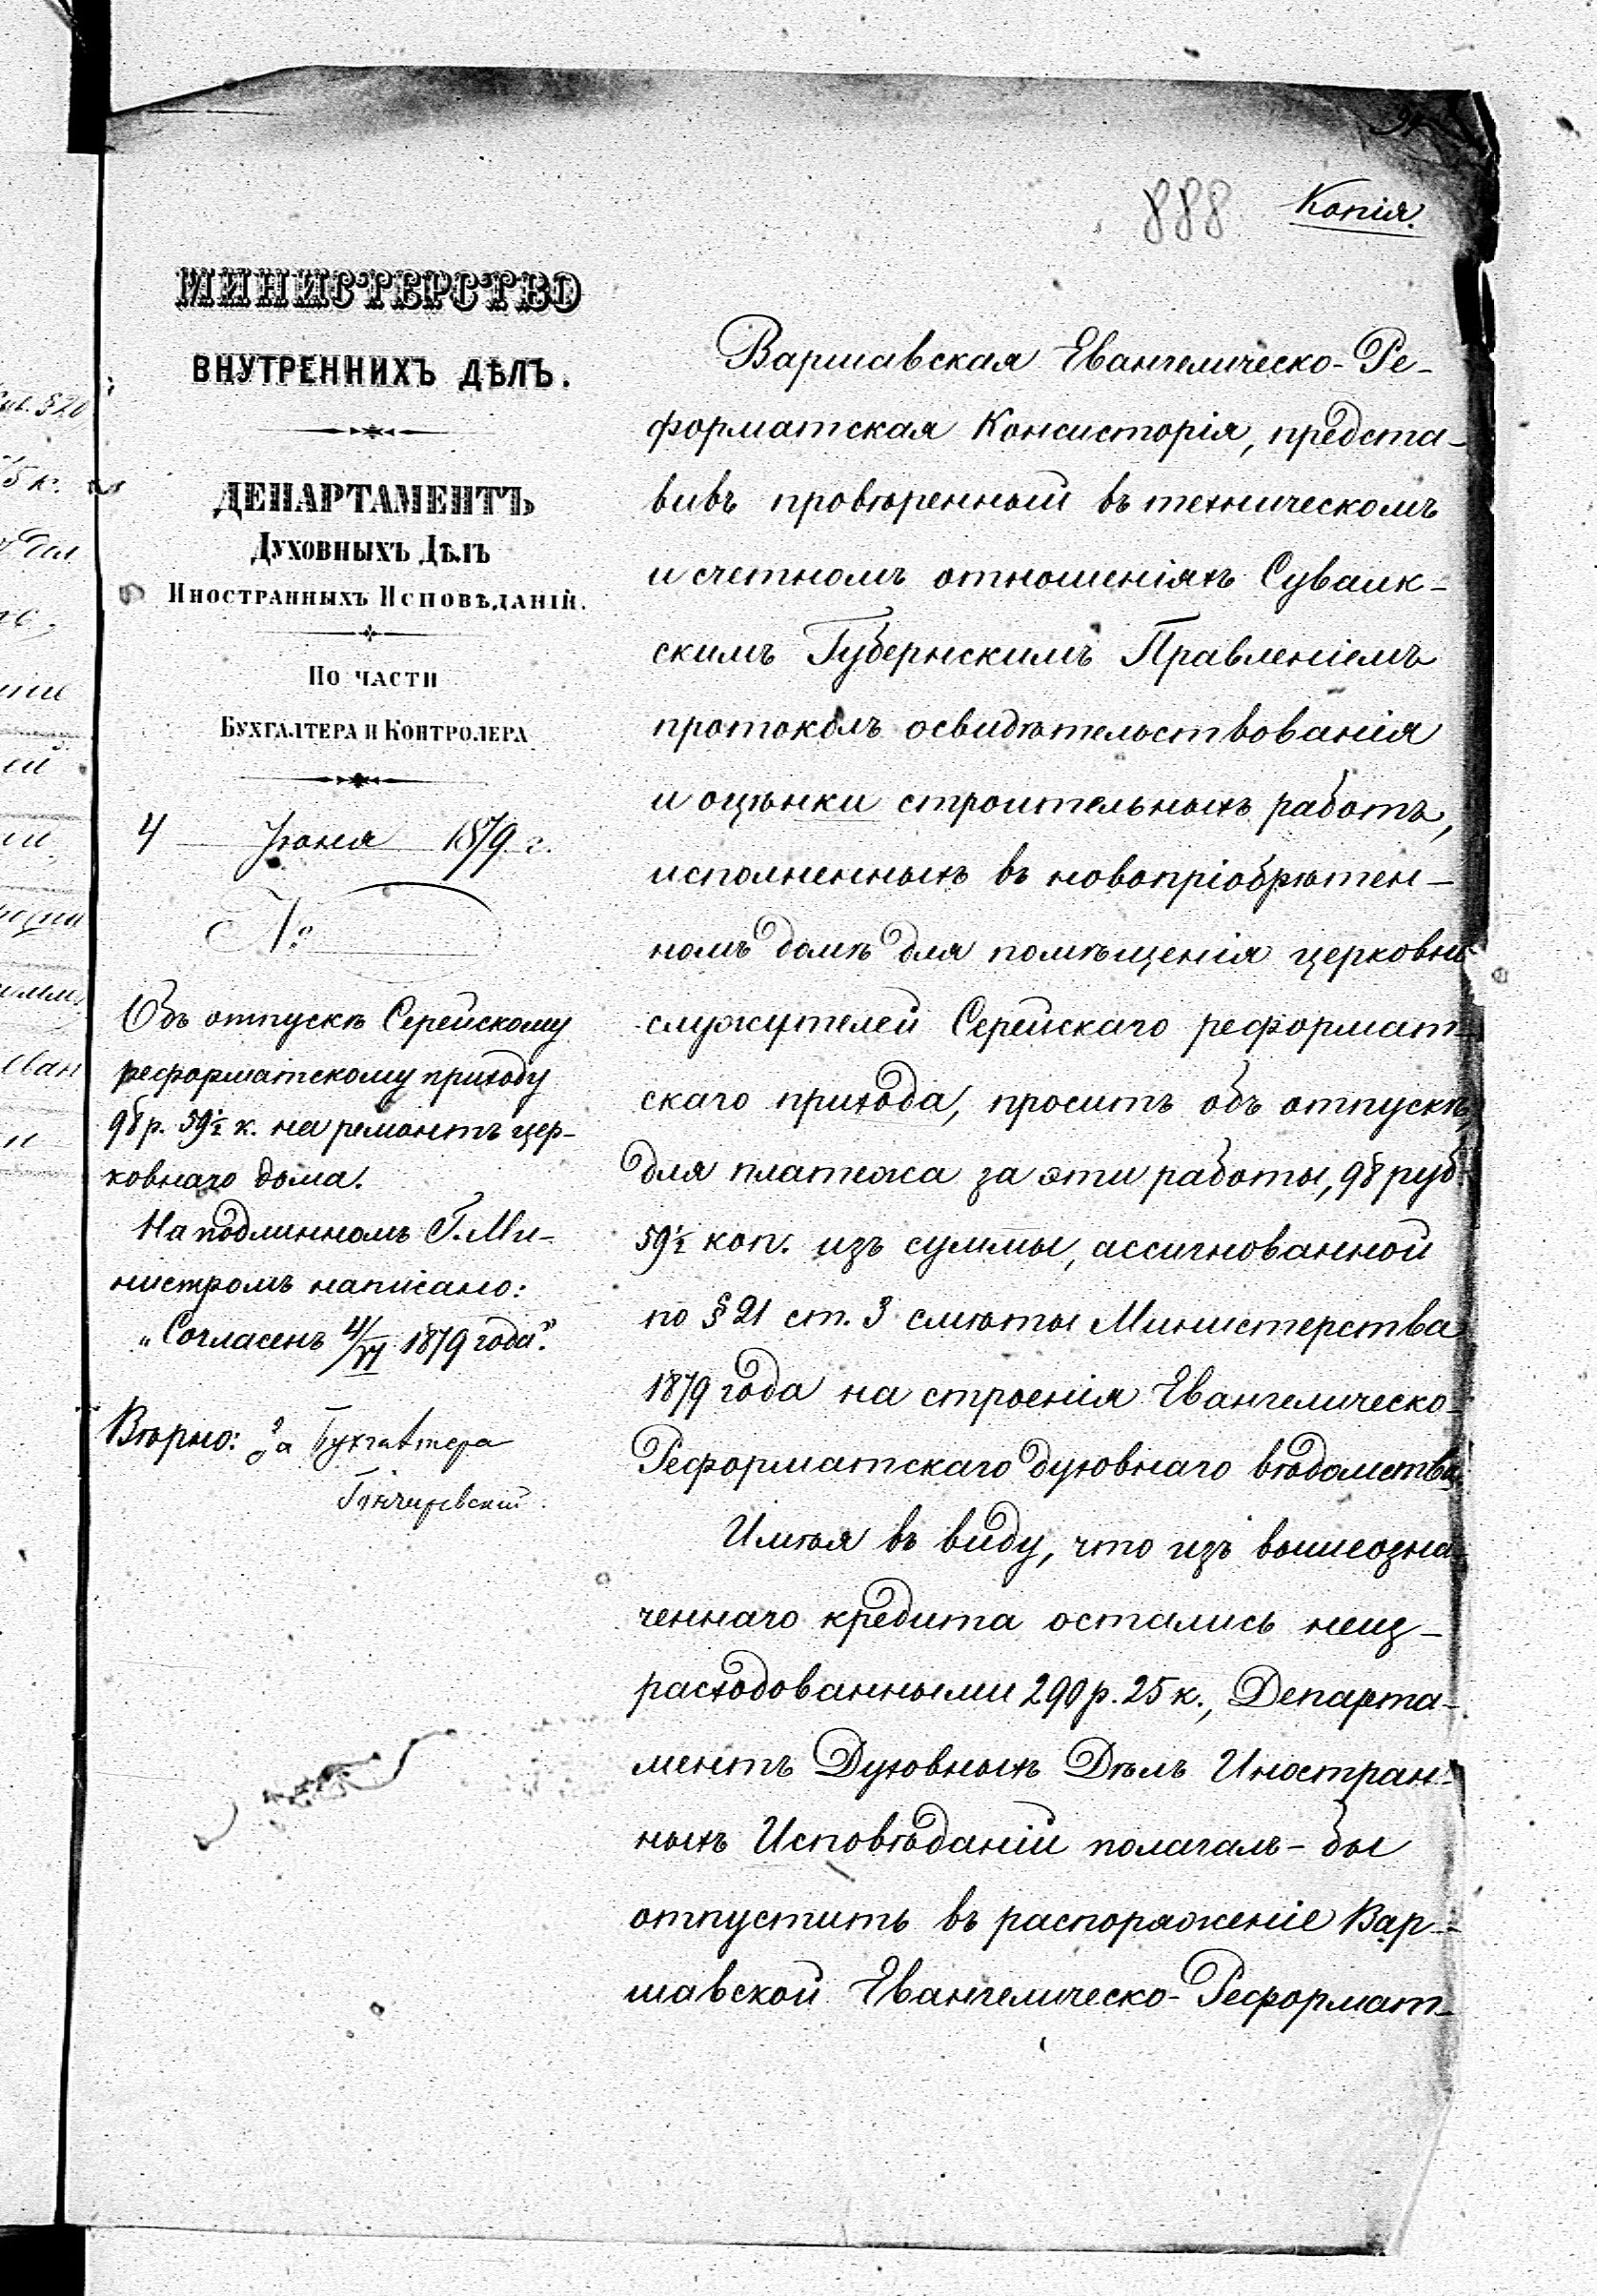 888 Копія.
МИНИСТЕРСТВО
ВНУТРЕННИХЪ ДѢЛЪ.
ДЕПАРТАМЕНТЪ
ДУХОВНЫХЪ ДѢЛЪ
ИНОСТРАННЫХЪ ИСПОВѢДАНІЙ.
ПО ЧАСТИ
БУХГАЛТЕРА И КОНТРОЛЕРА
4 Іюня 1879 г.
№
Объ отпускѣ Серейскому
реформатскому приходу
98 р. 59½ к. на ремонтъ цер-
ковнаго дома.
На подлинномъ Г. Ми-
нистромъ написано:
„Согласенъ 4/VI 1879 года".
Вѣрно: За Бухгалтера
Варшавская Евангелическо-Ре-
форматская Консисторія, предста-
вивъ провѣренный въ техническомъ
и счетномъ отношеніяхъ Сувалк-
скимъ Губернскимъ Правленіемъ
протоколъ освидѣтельствованія
и оцѣнки строительныхъ работъ,
исполненныхъ въ новопріобрѣтен-
номъ домѣ для помѣщенія церковн
служителей Серейскаго реформат-
скаго прихода, проситъ объ отпускѣ,
для платежа за эти работы, 98 руб.
59½ коп. изъ суммы, ассигнованной
по § 21 ст. 3 смѣты Министерства
1879 года на строенія Евангелическо-
Реформатскаго духовнаго вѣдомства.
Имѣя въ виду, что изъ вышеозна-
ченнаго кредита остались неиз-
расходованными 290 р. 25 к., Департа-
ментъ Духовныхъ Дѣлъ Иностран-
ныхъ Исповѣданій полагалъ-бы
отпустить въ распоряженіе Вар-
шавской Евангелическо-Реформат-